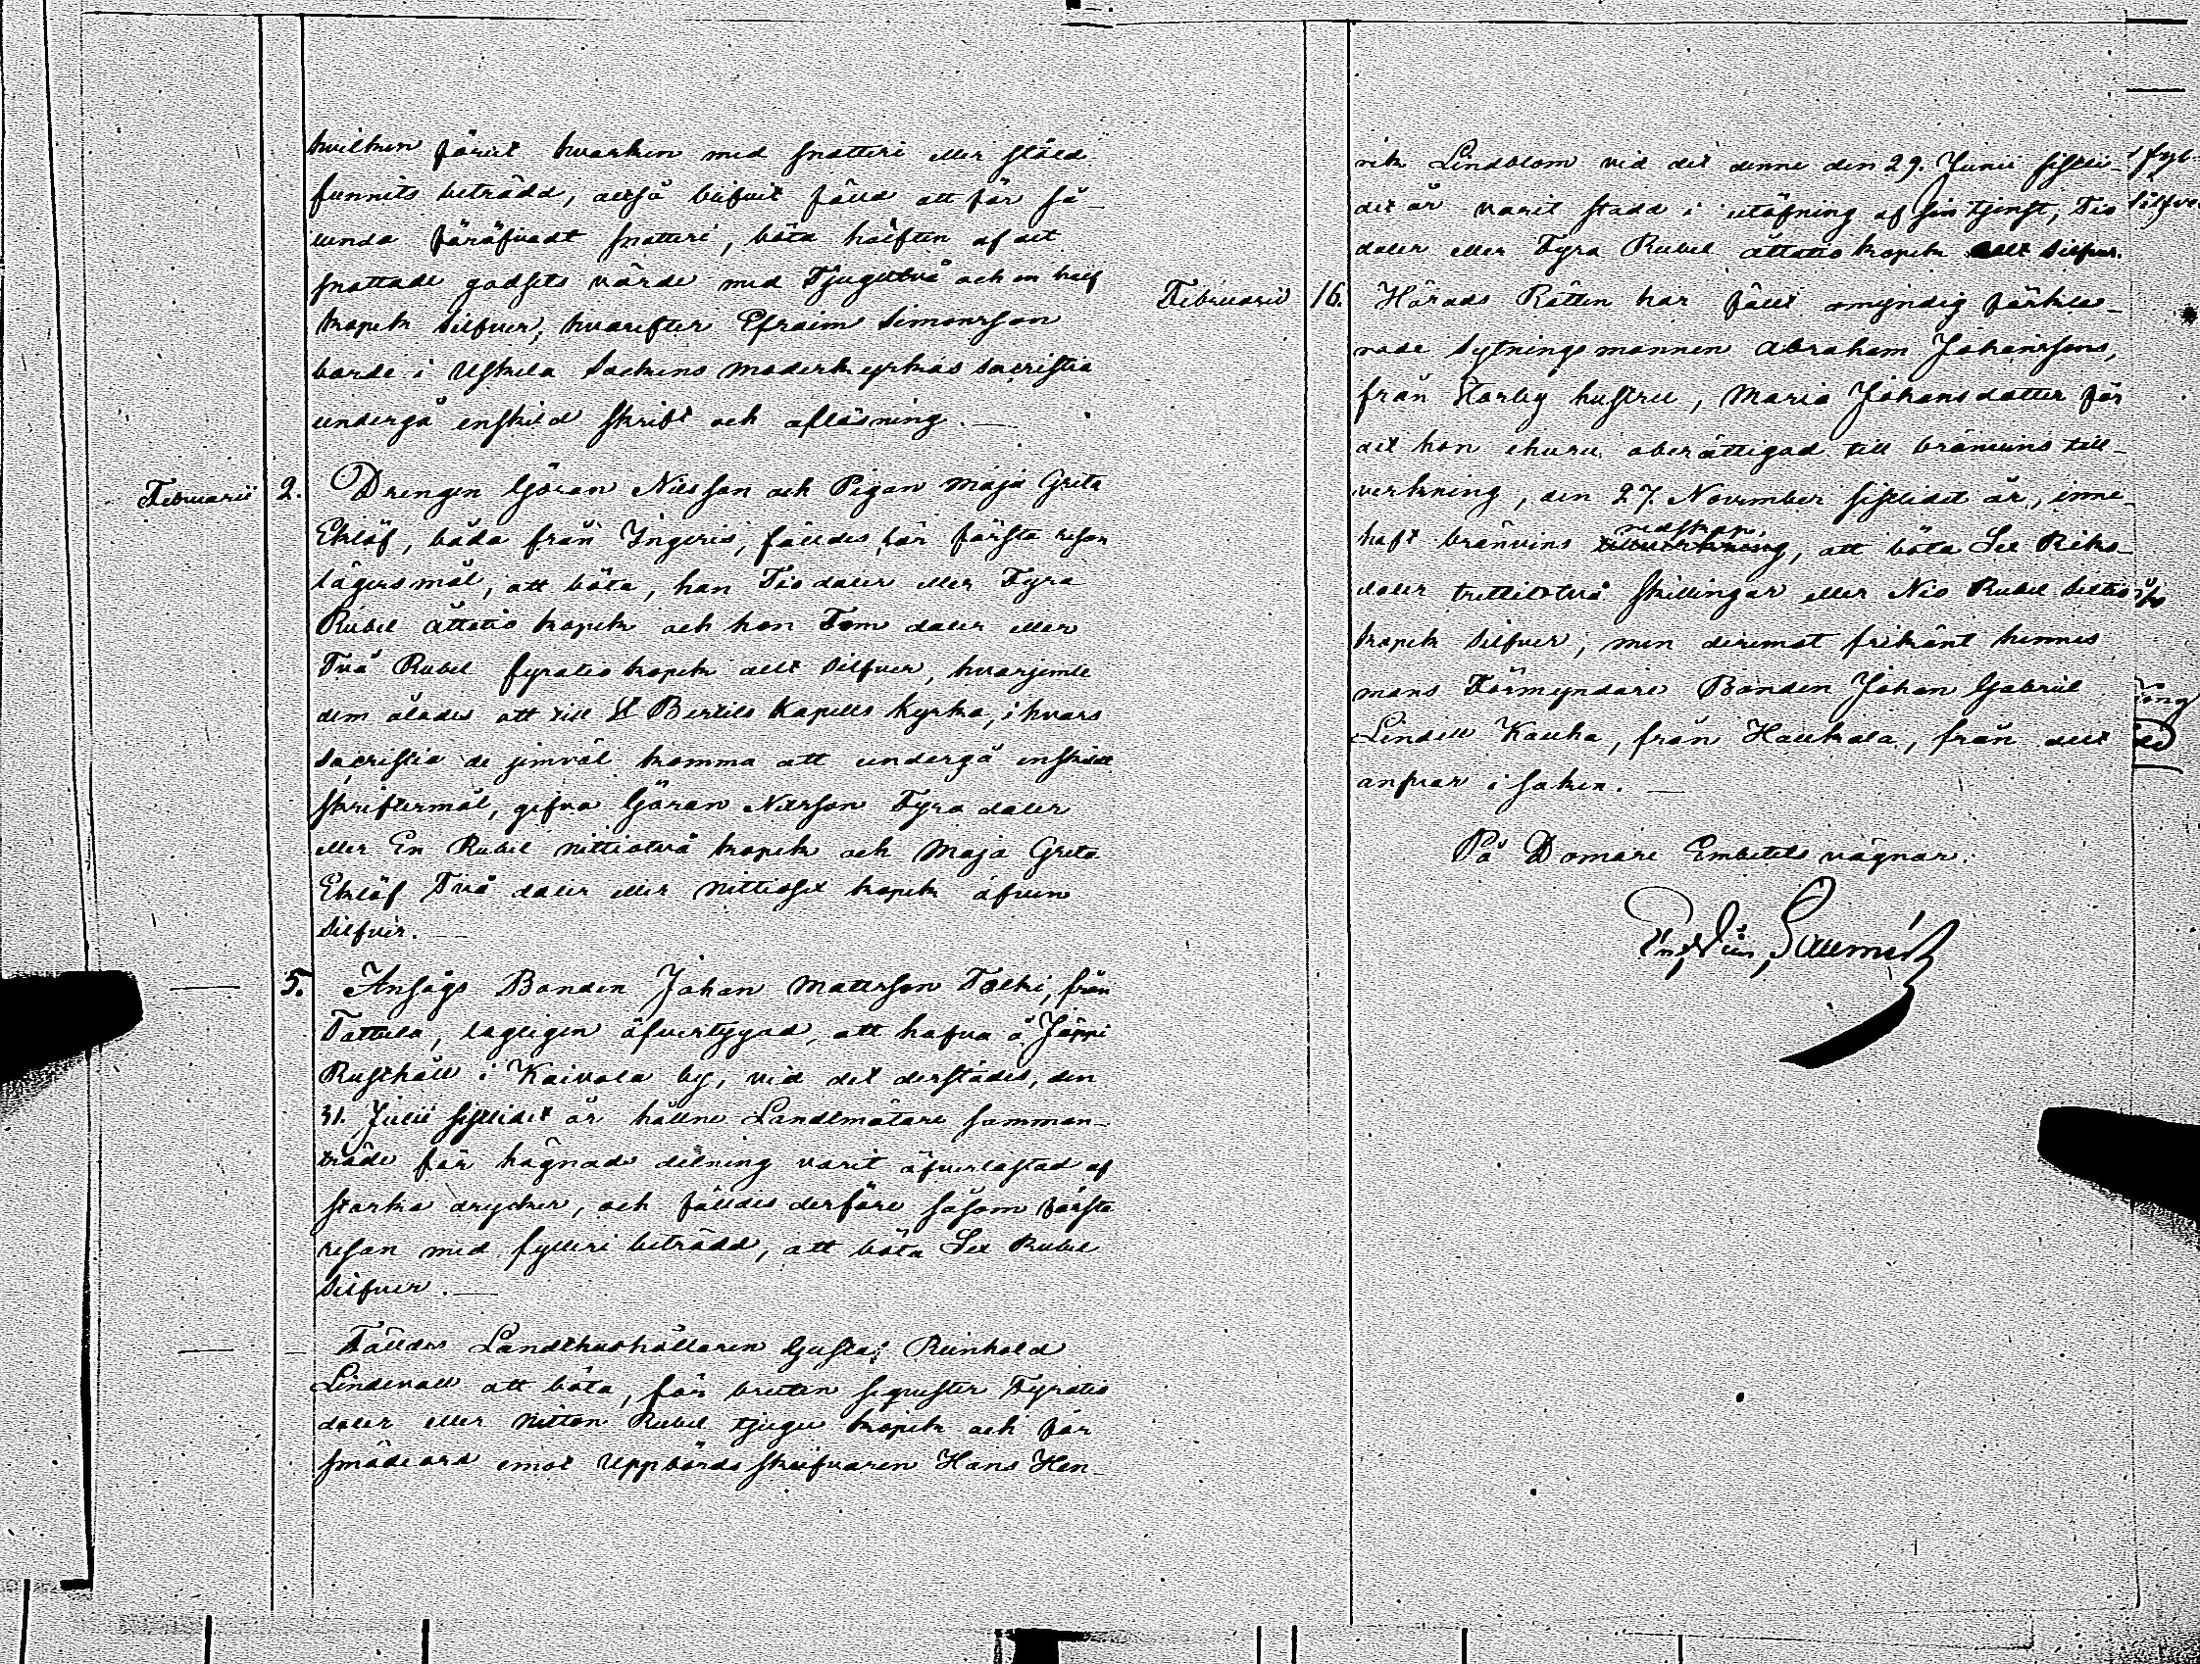 hvilken förut hvarken med snatteri eller stöld
funnits beträdd, altså blifvit fälld att för så
lunda föröfvadt snatteri, böta hälften af det
snattade godsets värde med Tjugutvå och en half
kopek silfver, hvarefter Efraim Simonsson
borde i Uskela Sockens moderkyrkas sacristia
undergå enskild skrift och aflösning.
Februarii 2. Drengen Göran Nilsson och Pigan Maja Greta
Eklöf, båda från Ingeris, fälldes för första resan
lägersmål, att böta, han Tio daler eller Fyra
Rubel åttatio kopek och hon Fem daler eller
Två Rubel fyratio kopek allt silfver, hvarjemte
dem ålades att till St Bertils Kapells kyrka, i hvars
sacristia de jemväl komma att undergå enskildt
skriftermål, gifva Göran Nilsson Fyra daler
eller En Rubel nittiotvå kopek och Maja Greta
Eklöf Två daler eller nittiosex kopek äfven
silfver.
5. Ansågs Bonden Johan Matsson Tolki, från
Tattula, lagligen öfvertygad, att hafva å Jäppi
Rusthåll i Kaivola by, vid det derstädes, den
31. Julii sistlidet år hållne Landtmätare samman-
träde för hägnads delning varit öfverlastad af
starka drycker, och fälldes derföre såsom första
resan med fylleri beträdd, att böta Sex Rubel
Silfver.
Fälldes Landthushållaren Gustaf Reinhold
Lindevall att böta, för bruten seqvester Fyratio
daler eller nitton Rubel tjugu kopek och för
smädeord emot Uppbördsskrifvaren Hans Hen-
rik Lindblom vid det denne den 29. Junii sistli-
det år varit stadd i utöfning af sin tjenst, Tio
daler eller Fyra Rubel åttatio kopek allt silfver.
Februarii 16. Härads Rätten har fällt omyndig förkla-
rade Sytningsmannen Abraham Johanssons,
från Storby hustru, Maria Johansdotter för
det hon ehuru oberättigad till bränvins till-
verkning, den 27. November sistlidet år, inne-
redskap,
haft bränvins tillverkning, att böta Sex Riks-
daler trettiotvå skillingar eller Nio Rubel sextio
kopek silfver, men deremot frikänt hennes
mans Förmyndare Bonden Johan Gabriel
Lindell Kauha, från Haukala, från allt
ansvar i saken.
På Domare Embetets vägnar: